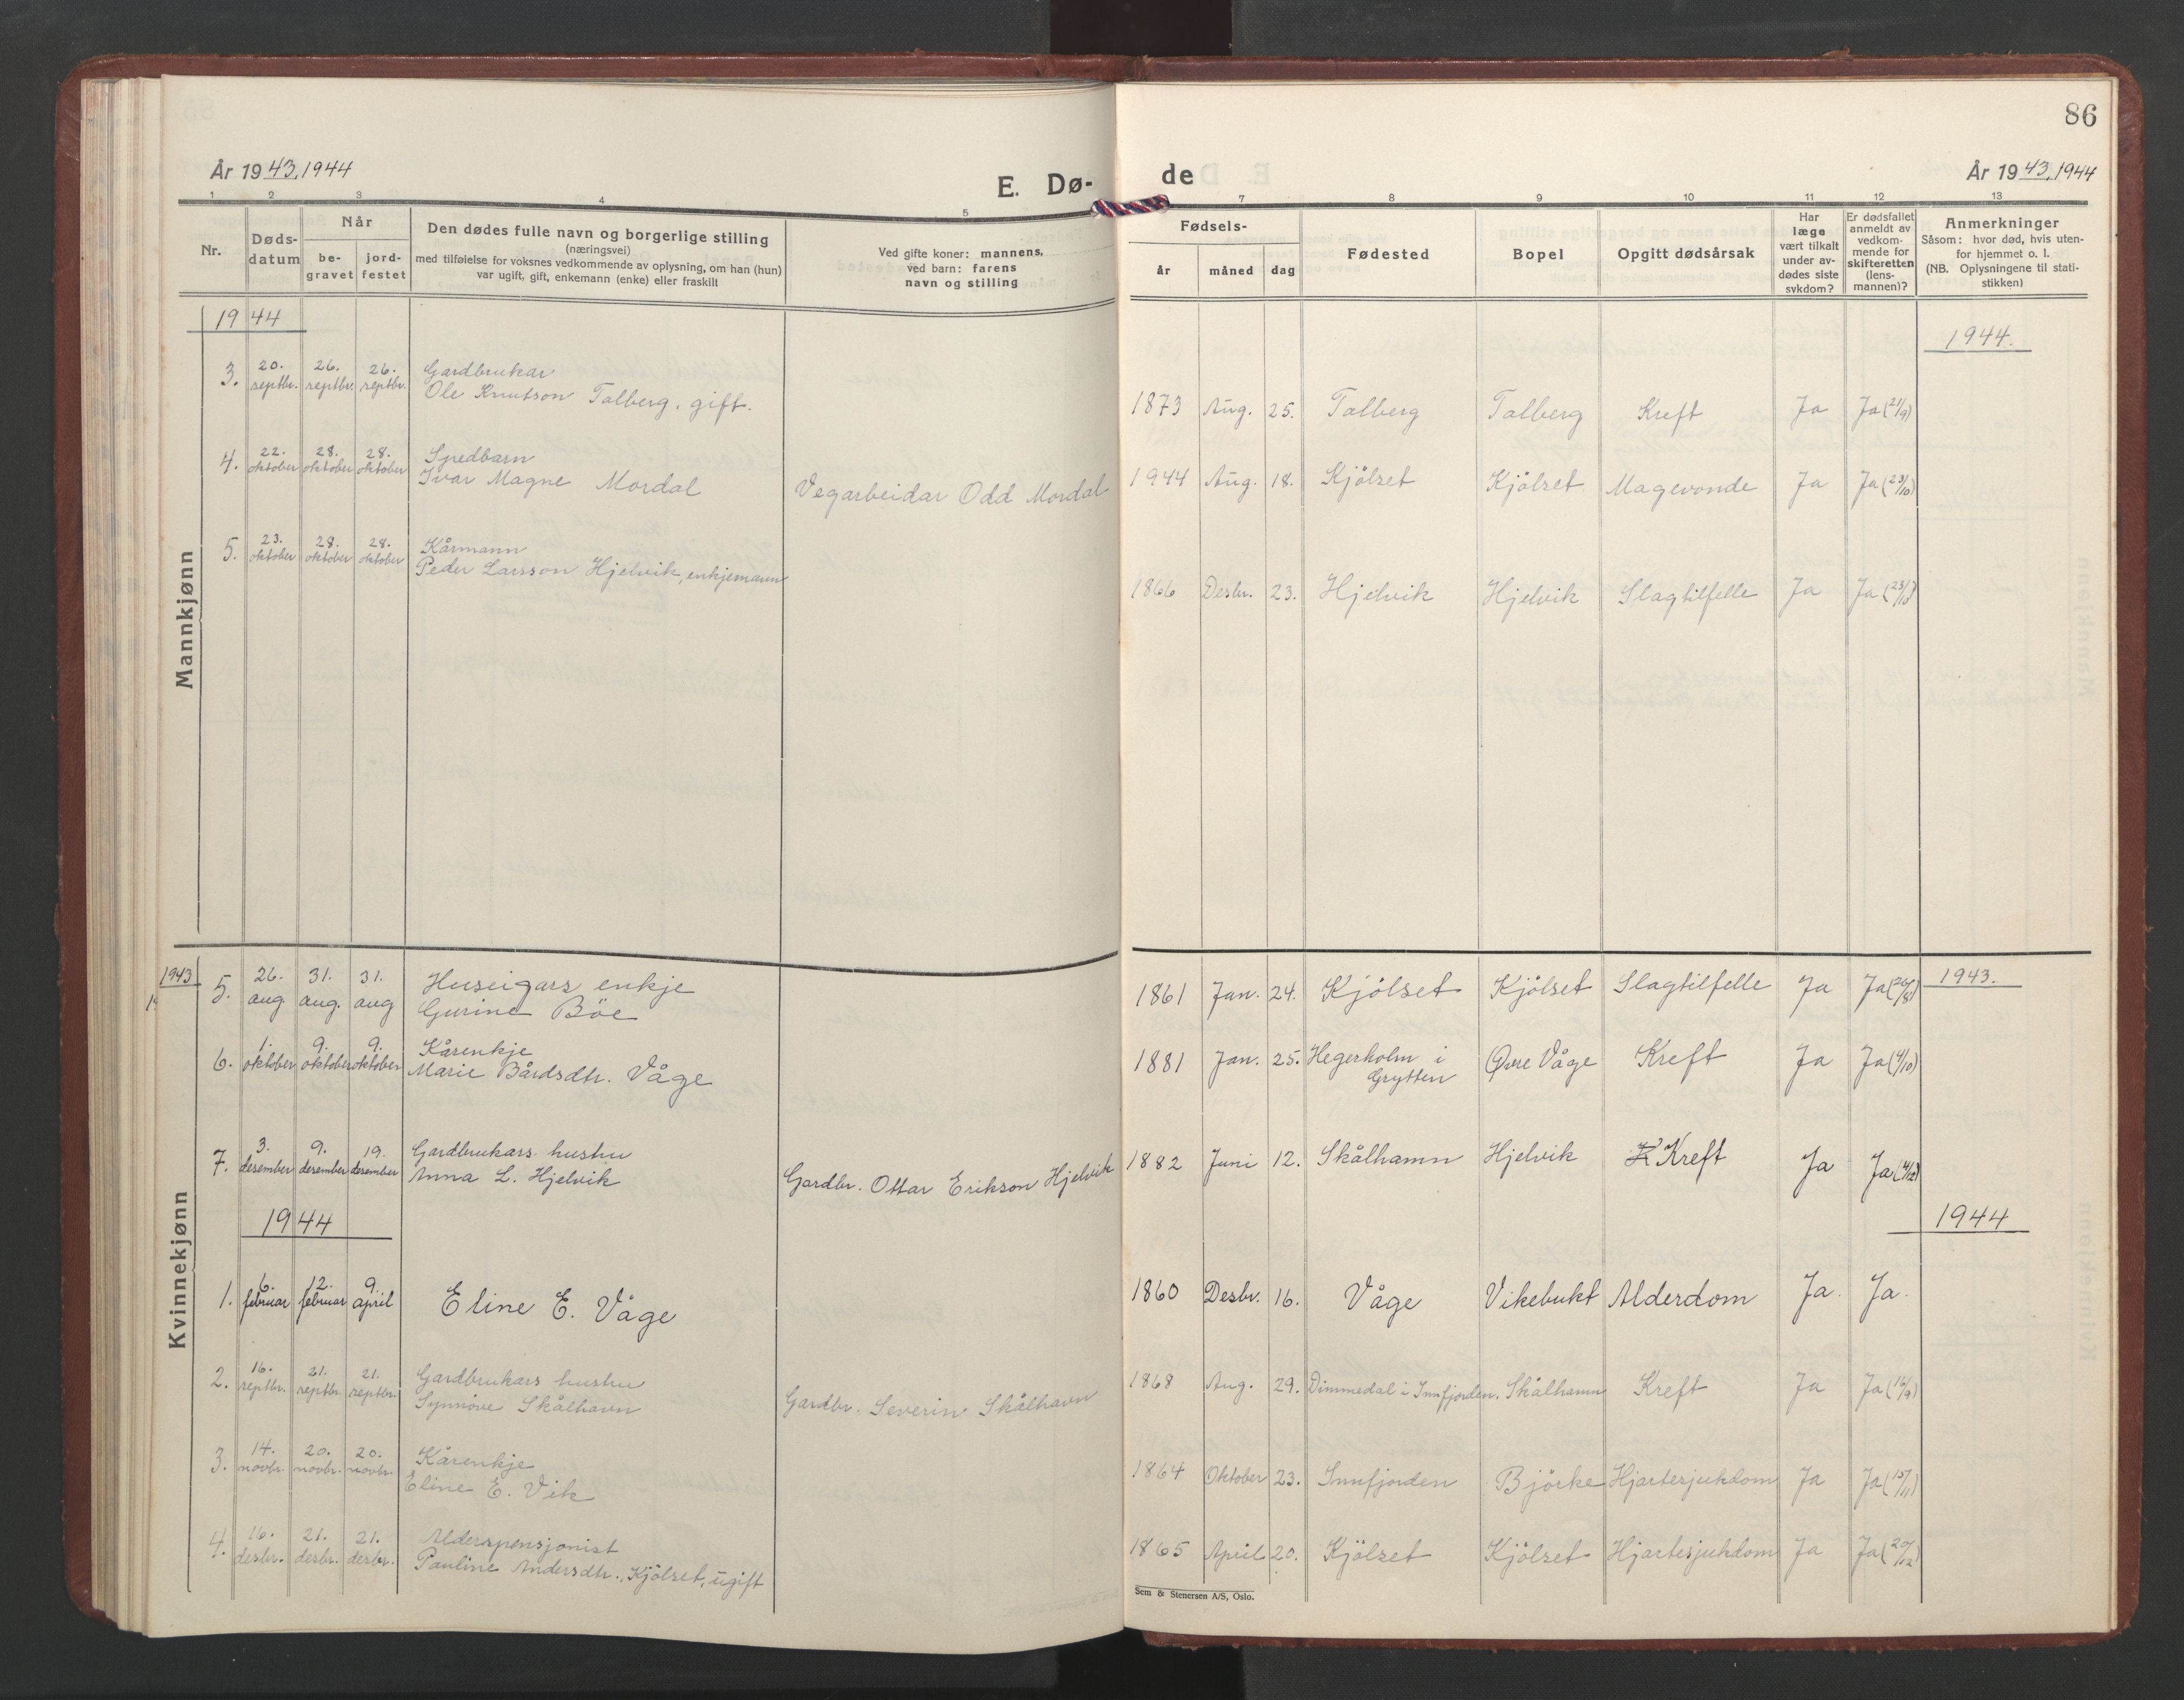 86
År 1943, 1944
E. Dø-
de
År 1943, 1944
1 2 3 4 5 7 8 9 10 11 12 13
Nr.
Døds-
datum
Når
be-
gravet
jord-
festet
Den dødes fulle navn og borgerlige stilling
(næringsvei)
med tilføielse for voksnes vedkommende av oplysning, om han (hun)
var ugift, gift, enkemann (enke) eller fraskilt
Ved gifte koner: mannens,
ved barn: farens
navn og stilling
Fødsels-
år måned dag
Fødested
Bopel
Opgitt dødsårsak
Har
læge
vært tilkalt
under av-
dødes siste
sykdom?
Er dødsfallet
anmeldt av
vedkom-
mende for
skifteretten
(lens-
mannen)?
Anmerkninger
Såsom: hvor død, hvis uten-
for hjemmet o. l.
(NB. Oplysningene til stati-
stikken)
Mannkjønn
1944
1944.
3. 20. septbr. 26. septbr. 26. septbr. Gardbrukar
Ole Knutson Talberg, gift. 1873 Aug. 25. Talberg Talberg Kreft Ja Ja (21/9)
4. 22. oktober 28. oktober 28. oktober Spedbarn
Ivar Magne Mordal Vegarbeidar Odd Mordal 1944 Aug. 18. Kjölset Kjölset Magevonde Ja Ja (23/10)
5. 23. oktober 28. oktober 28. oktober Kårmann
Peder Larsson Hjelvik, enkjemann 1866 Desbr. 23. Hjelvik Hjelvik Slagtilfelle Ja Ja (23/10)
Kvinnekjønn
1943
1943.
5. 26. aug. 31. aug. 31. aug Huseigars enkje
Gurine Böe 1861 Jan. 24. Kjölset Kjölset Slagtilfelle Ja Ja (26/8)
6. 1. oktober 9. oktober 9. oktober Kårenkje
Marie Bårdsdtr. Våge 1881 Jan. 25. Hegerholm i
Grytten Øvre Våge Kreft Ja Ja (4/10)
7. 3. desember 9. desember 19. desember Gardbrukars hustru
Anna L. Hjelvik Gardbr. Ottar Erikson Hjelvik 1882 Juni 12. Skålhamn Hjelvik Kreft Ja Ja (4/12)
1944
1944
1. 6. februar 12. februar 9. april Eline E. Våge 1860 Desbr. 16. Våge Vikebukt Alderdom Ja. Ja.
2. 16. septbr. 21. septbr. 21. septbr. Gardbrukars hustru
Synnöve Skålhavn Gardbr. Severin Skålhavn 1868 Aug. 29. Dimmedal i Innfjorden. Skålhamn Kreft Ja Ja (16/9)
3. 14. novbr. 20. novbr. 20. novbr. Kårenkje
Eline E. Vik 1864 Oktober 23. Innfjorden Björke Hjartesjukdom Ja Ja (15/11)
4. 16. desbr. 21. desbr. 21. desbr. Alderspensjonist
Pauline Andersdtr. Kjölset, ugift 1865 April 20. Kjölset Kjölset Hjartesjukdom Ja Ja (20/12)
Sem & Stenersen A/S, Oslo.